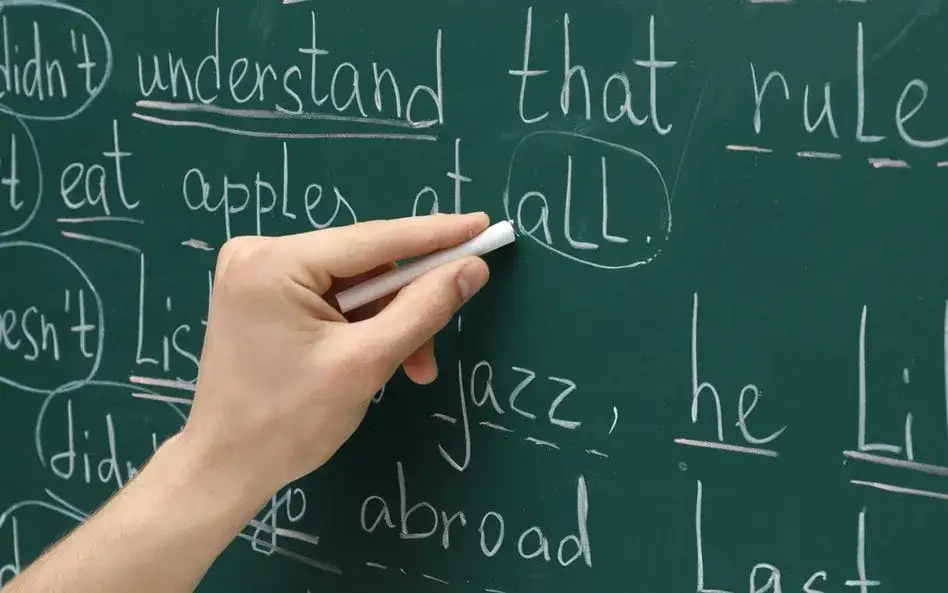 didn't understand that rule
eat apples at all.
Lis
jazz, he Li
didn go abroad Last